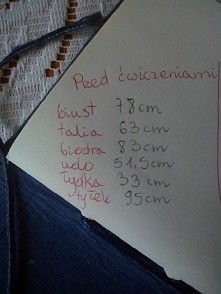 Przed ćwiczeniami
biust 78cm
talia 63cm
biodra 83cm
udo 51,5cm
łydka 33cm
tyłek 95cm